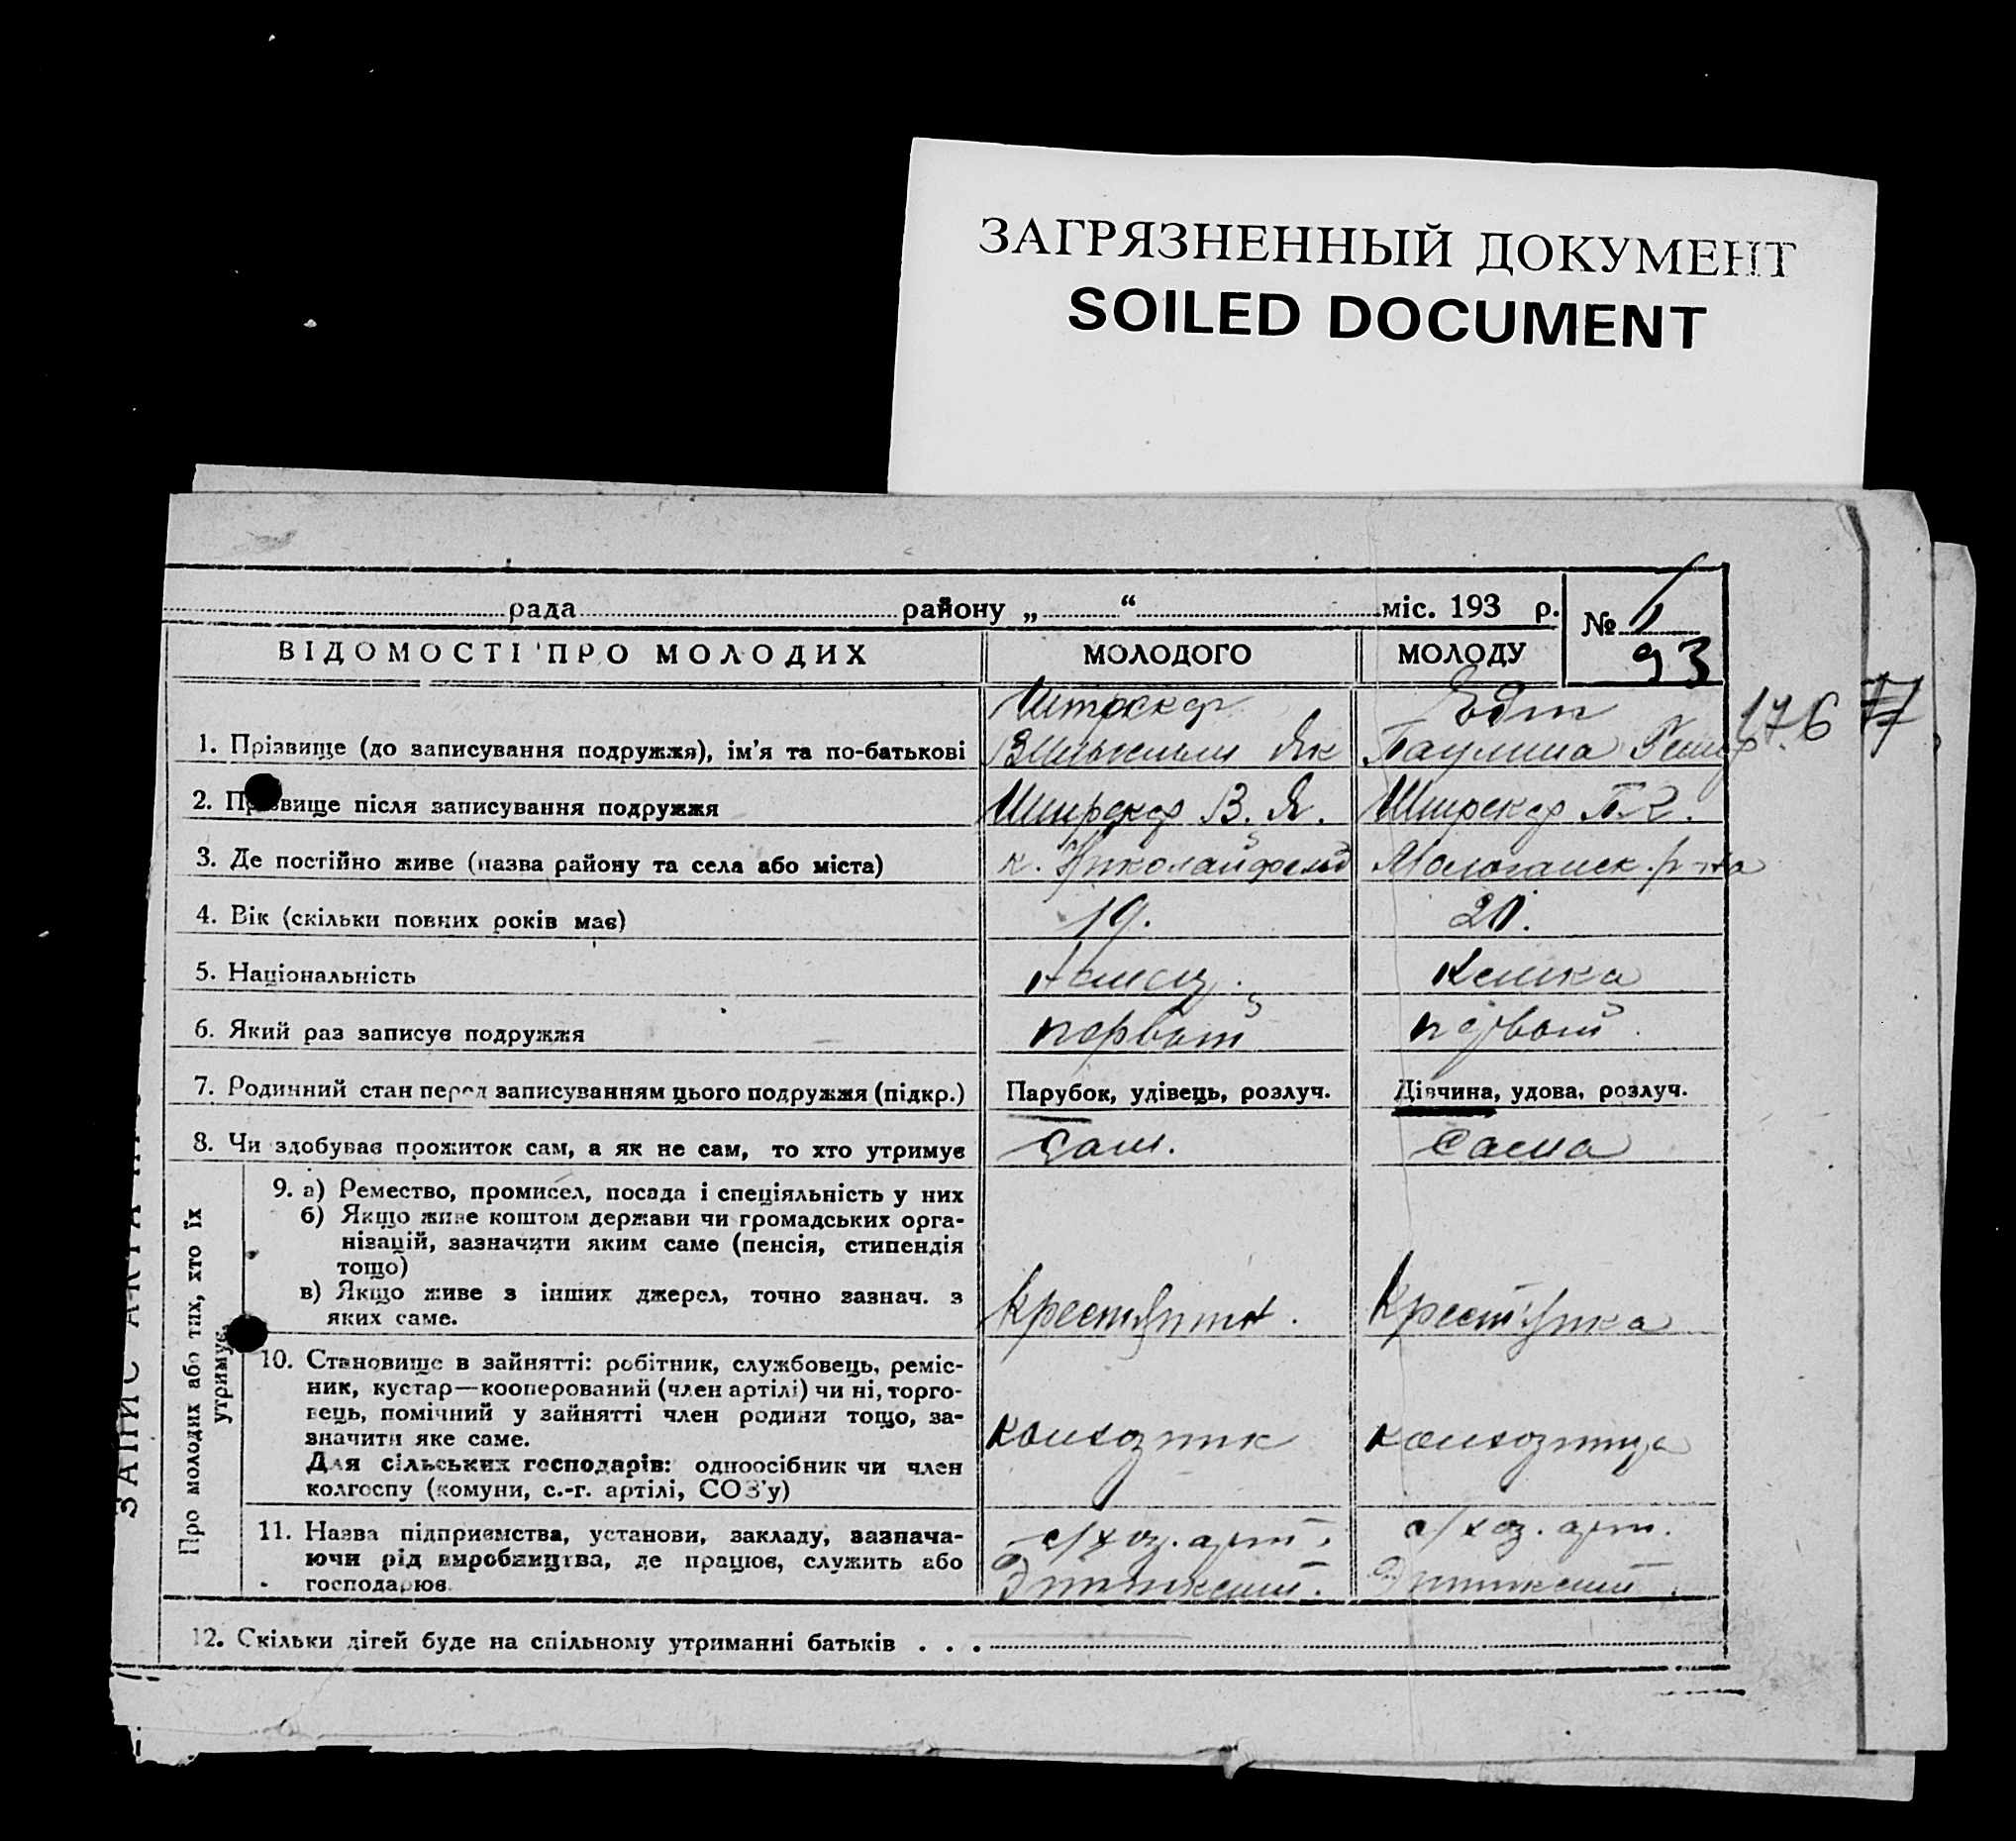 ЗАГРЯЗНЕННЫЙ ДОКУМЕНТ
SOILED DOCUMENT
рада району „ “ міс. 193 р.
№ 1
93
ВІДОМОСТІ ПРО МОЛОДИХ МОЛОДОГО МОЛОДУ
176
1. Прізвище (до записування подружжя), ім'я та по-батькові Вильгельм Як Паулина
2. Прізвище після записування подружжя В. Я.
3. Де постійно живе (назва району та села або міста) к. Николайфельд р-на
4. Вік (скільки повних років має) 19. 20.
5. Національність немец. немка
6. Який раз записує подружжя первый первый.
7. Родинний стан перед записуванням цього подружжя (підкр.) Парубок, удівець, розлуч. Дівчина, удова, розлуч.
8. Чи здобуває прожиток сам, а як не сам, то хто утримує Сам. Сама
ЗАПИС АКТА ПРО
Про молодих або тих, хто їх
утримує
9. а) Ремество, промисел, посада і спеціяльність у них
б) Якщо живе коштом держави чи громадських орга-
нізацій, зазначити яким саме (пенсія, стипендія
тощо)
в) Якщо живе з інших джерел, точно зазнач. з
яких саме.
Крестьянин. Крестьянка
10. Становище в зайнятті: робітник, службовець, реміс-
ник, кустар—кооперований (член артілі) чи ні, торго-
вець, помічний у зайнятті член родини тощо, за-
значити яке саме.
Для сільських господарів: одноосібник чи член
колгоспу (комуни, с.-г. артілі, СОЗ'у)
колхозник колхозница
11. Назва підприємства, установи, закладу, зазнача-
ючи рід виробництва, де працює, служить або
господарює.
с/хоз. арт. с/хоз. арт.
12. Скільки дітей буде на спільному утриманні батьків . . .